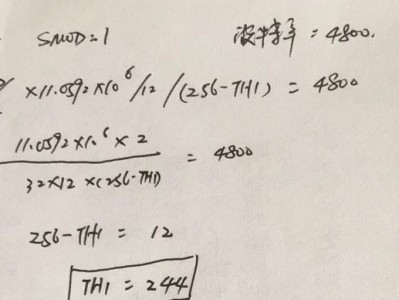 SMOD=1 波特率=4800.
×11.0592×10⁶/12/(256-TH1) = 4800
11.0592×10⁶×2
= 4800
32×12×(256-TH1)
256-TH1 = 12
TH1 = 244